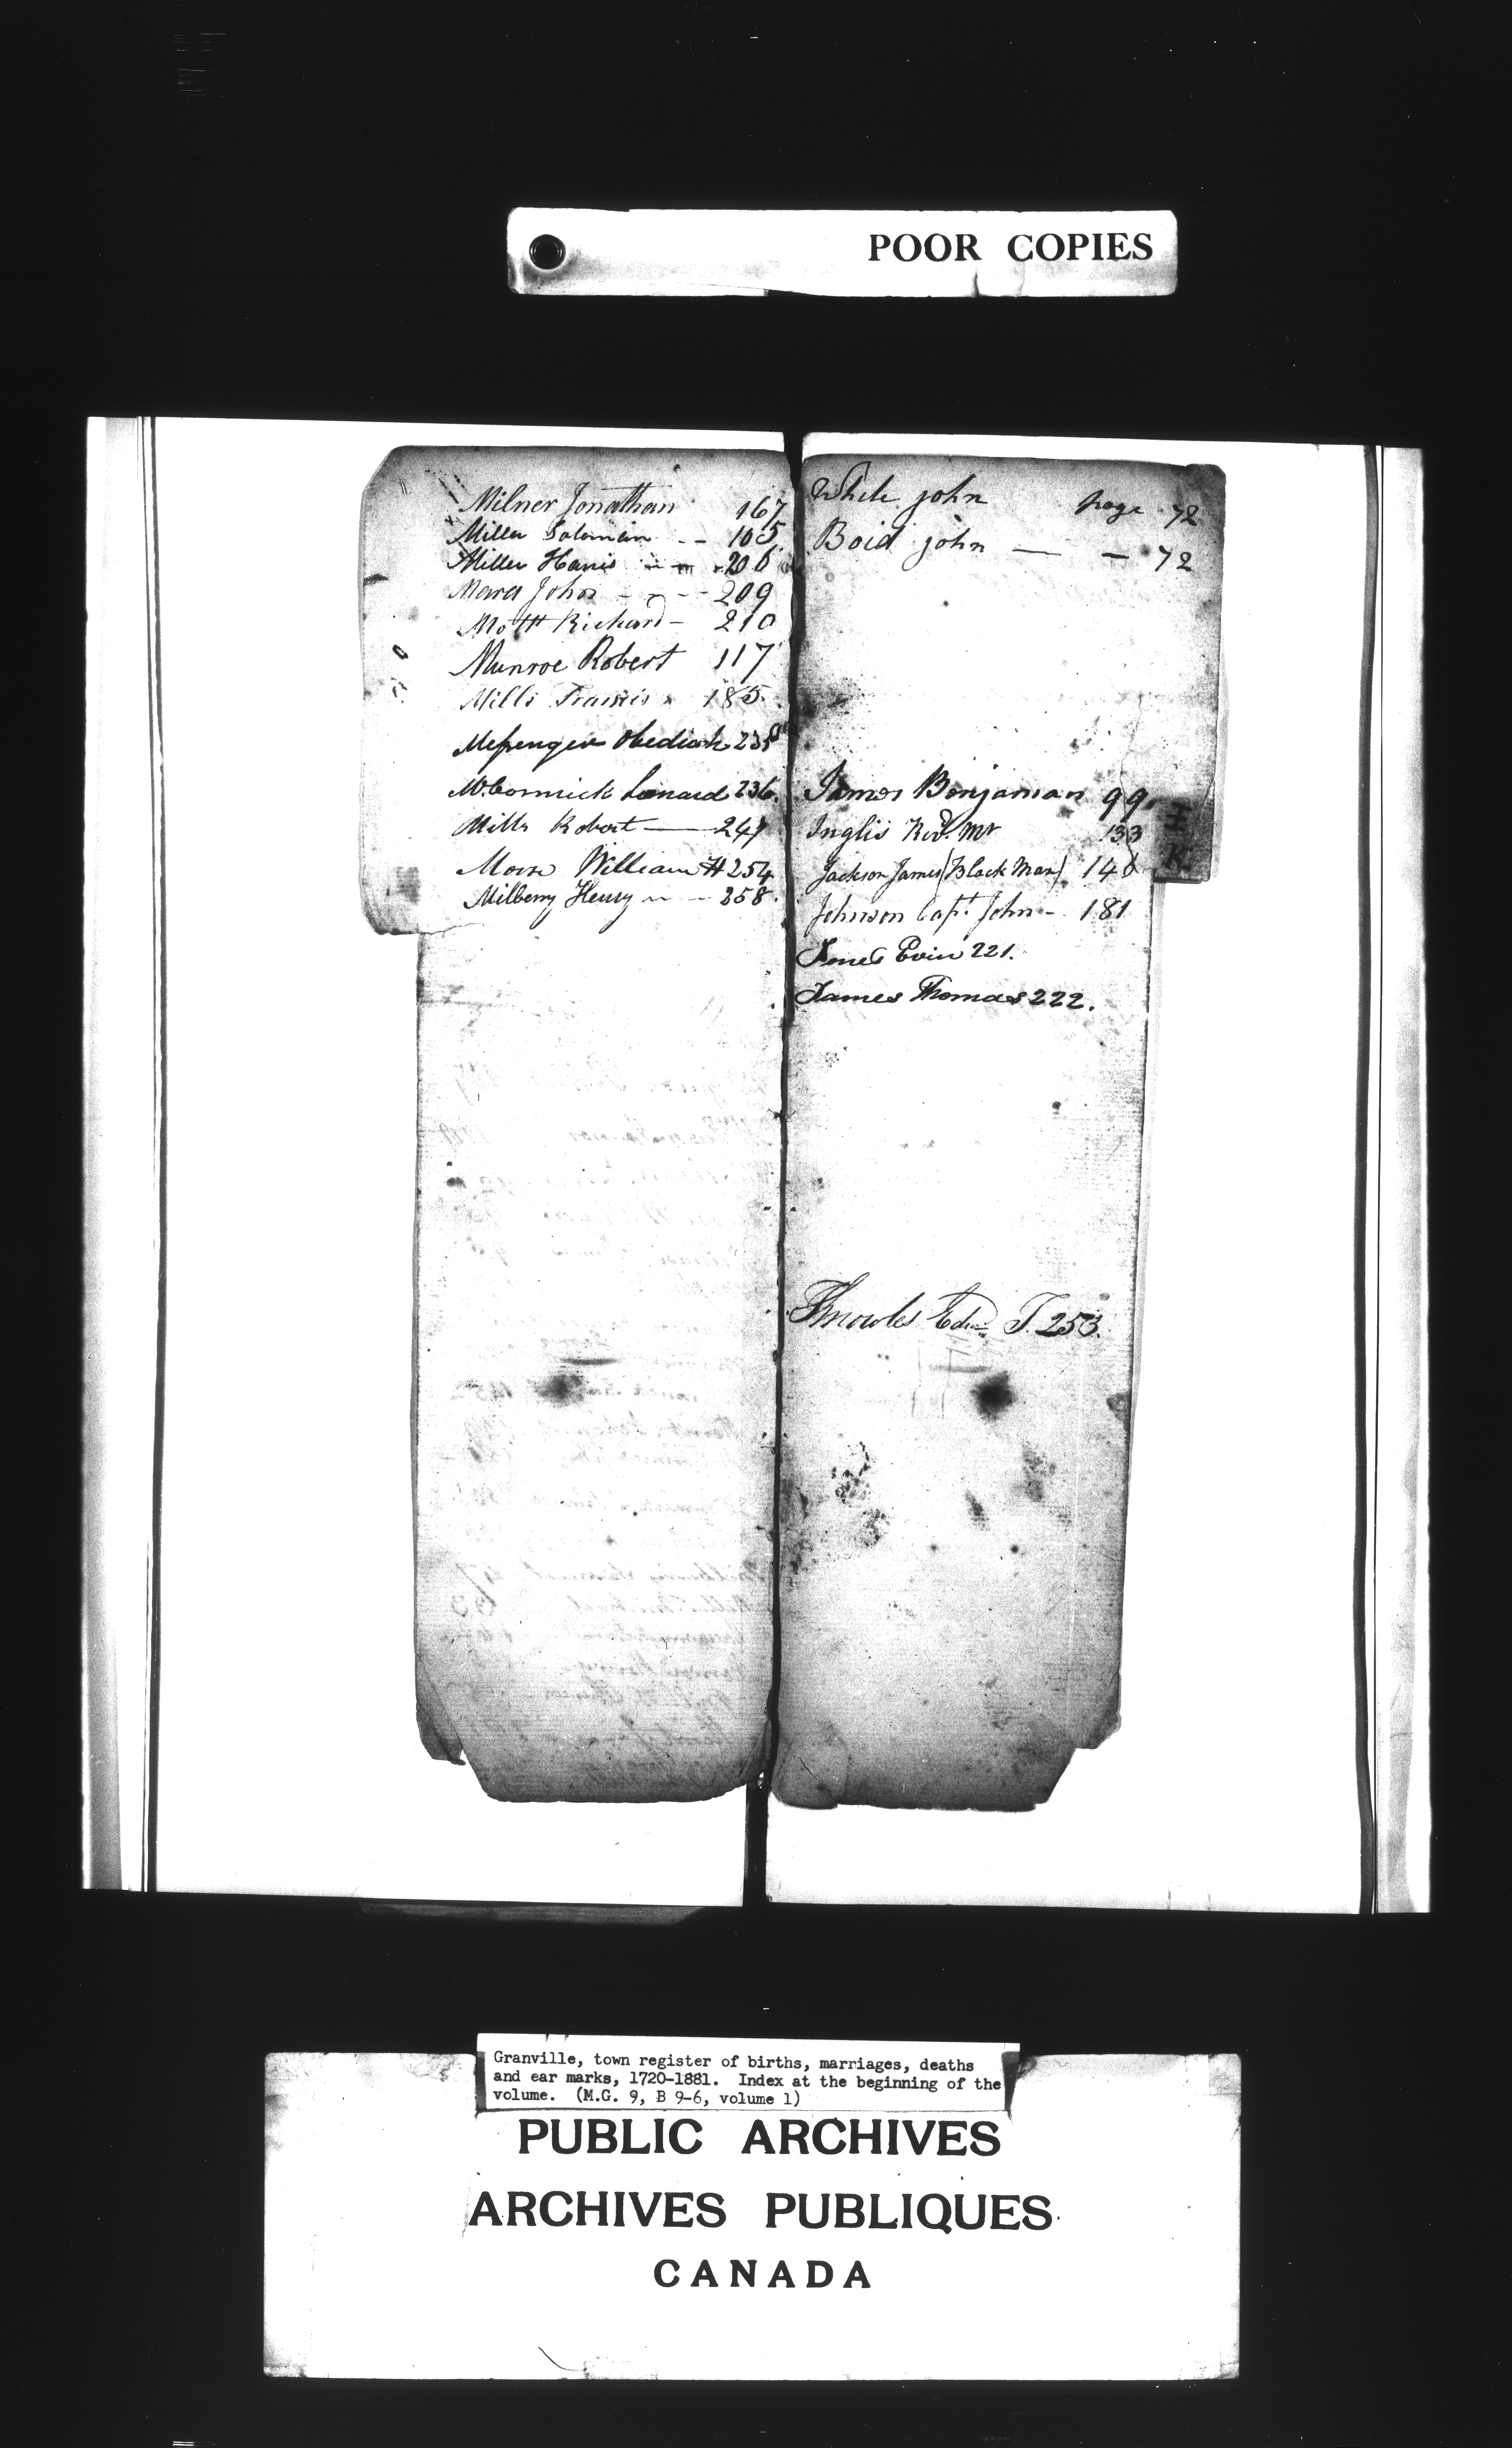 POOR COPIES
Milner Jonathan 167
Miller Solomon - - 105
Miller Haris - - 206
John - - - 209
Mott Richard - 210
Munroe Robert 117
Mills Francis 185.
Messenger Obediah 235
McCormick Lonard 236.
Mills Robert — 247
William H 254
Milberry Henry - - 258.
While john page 72
Boid john — — 72
James Benjaman 99.
Inglis Revd. Mr 133
I
K
Jackson James (Black Man) 140
Johnson Capt. John - 181
Jones Evin 221.
James Thomas 222.
Knowles Edw. T. 253.
Granville, town register of births, marriages, deaths
and ear marks, 1720-1881. Index at the beginning of the
volume. (M.G. 9, B 9-6, volume 1)
PUBLIC ARCHIVES
ARCHIVES PUBLIQUES
CANADA